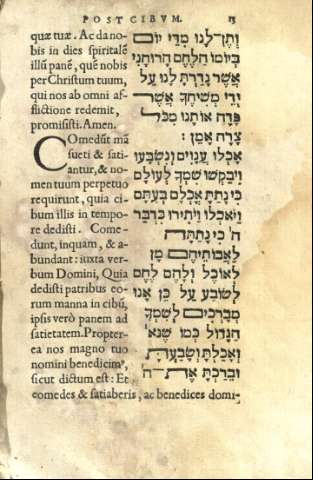 POST CIBVM.
quæ tuæ. Ac da no-
bis in dies spiritalẽ
illũ panẽ, quẽ nobis
per Christum tuum,
qui nos ab omni af-
flictione redemit,
promisisti. Amen.
COmedũt mã
sueti & sati-
antur, & no-
men tuum perpetuo
requirunt, quia ci-
bum illis in tempo-
re dedisti. Come-
dunt, inquam, & a-
bundant: iuxta ver-
bum Domini, Quia
dedisti patribus eo-
rum manna in cibũ,
ipsis verò panem ad
satietatem. Propter-
ea nos magno tuo
nomini benedicimꝰ,
sicut dictum est: Et
comedes & satiaberis, ac benedices domi-
ותן־לנו מדי יום
ביומו הלחם הרוחני
אשר נדרת לנו על
ידי משיחך אשר
פדה אותנו מכל־
צרה אמן:
אכלו ענוים ונשבעו
ויבקשו שמך לעולם
כי נתת אכלם בעתם
ויאכלו ויותירו כדבר
ה' כי נתתה
לאבותיהם מן
לאוכל ולהם לחם
לשובע על כן אנו
מברכים לשמך
הגדול כמו שנא'
ואכלת ושבעת
וברכת את ה'